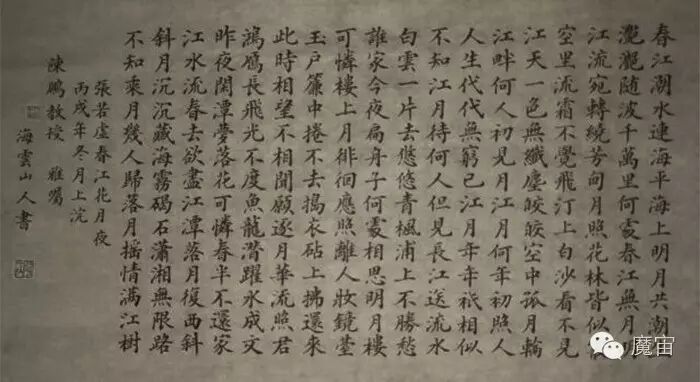 春江潮水連海平海上明月共潮
灔灔随波千萬里何處春江無月
江流宛轉繞芳甸月照花林皆似
空里流霜不覺飛汀上白沙看不見
江天一色無纖塵皎皎空中孤月輪
江畔何人初見月江月何年初照人
人生代代無窮已江月年年祇相似
不知江月待何人但見長江送流水
白雲一片去悠悠青楓浦上不勝愁
誰家今夜扁舟子何處相思明月樓
可憐樓上月徘徊應照離人妝鏡臺
玉戶簾中捲不去搗衣砧上拂還來
此時相望不相聞願逐月華流照君
鴻鴈長飛光不度魚龍潛躍水成文
昨夜閑潭夢落花可憐春半不還家
江水流春去欲盡江潭落月復西斜
斜月沉沉藏海霧碣石瀟湘無限路
不知乘月幾人歸落月搖情滿江樹
張若虛春江花月夜
丙戌年冬月上浣
陳鵬教授 雅囑
海雲山人書
魔宙